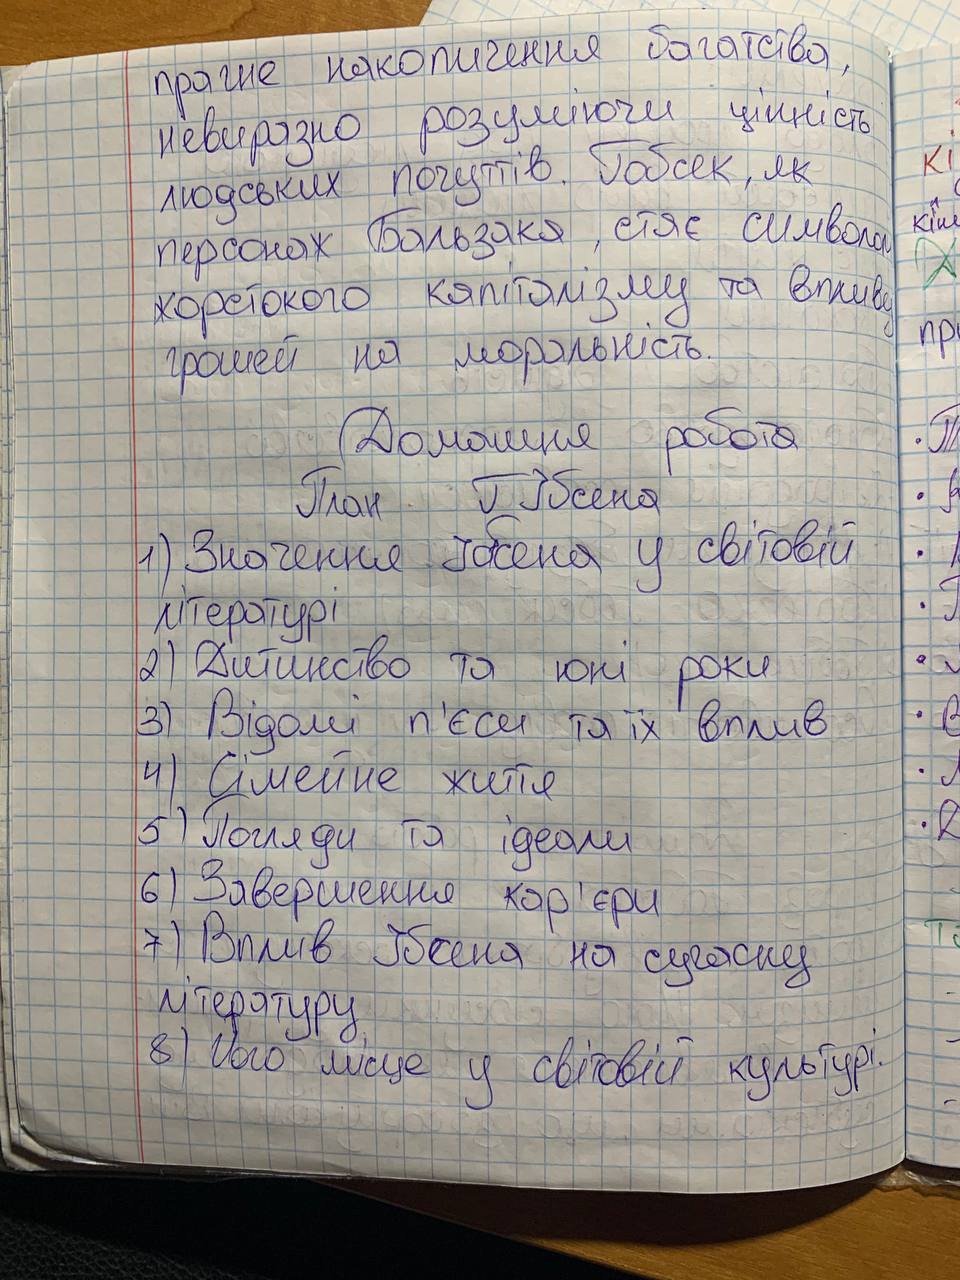 прагне накопичення багатства,
невиразно розуміючи цінність
людських почуттів. Гобсек, як
персонаж Бальзака, стає символом
жорстокого капіталізму та впливу
грошей на моральність.
Домашня робота
План Г. Ібсена
1) Значення Ібсена у світовій
літературі
2) Дитинство та юні роки
3) Відомі п'єси та їх вплив
4) Сімейне життя
5) Погляди та ідеали
6) Завершення кар'єри
7) Вплив Ібсена на сучасну
літературу
8) Його місце у світовій культурі.